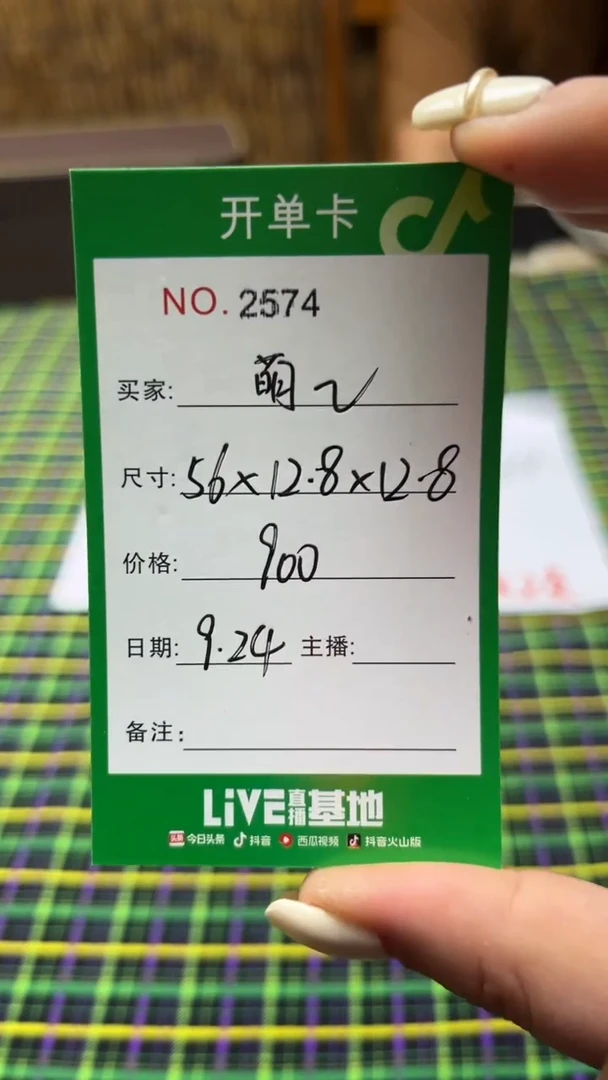 开单卡
NO. 2574
买家: 萌
尺寸: 56×12.8×12.8
价格: 900
日期: 9.24 主播:
备注:
LiVE直播基地
头条 今日头条 抖音 西瓜视频 抖音火山版